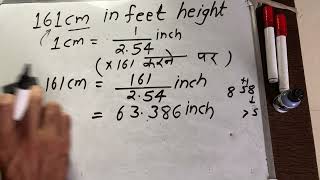 161cm in feet height
1cm = 1/2.54 inch
(×161 करने पर)
161cm = 161/2.54 inch
= 63.386 inch